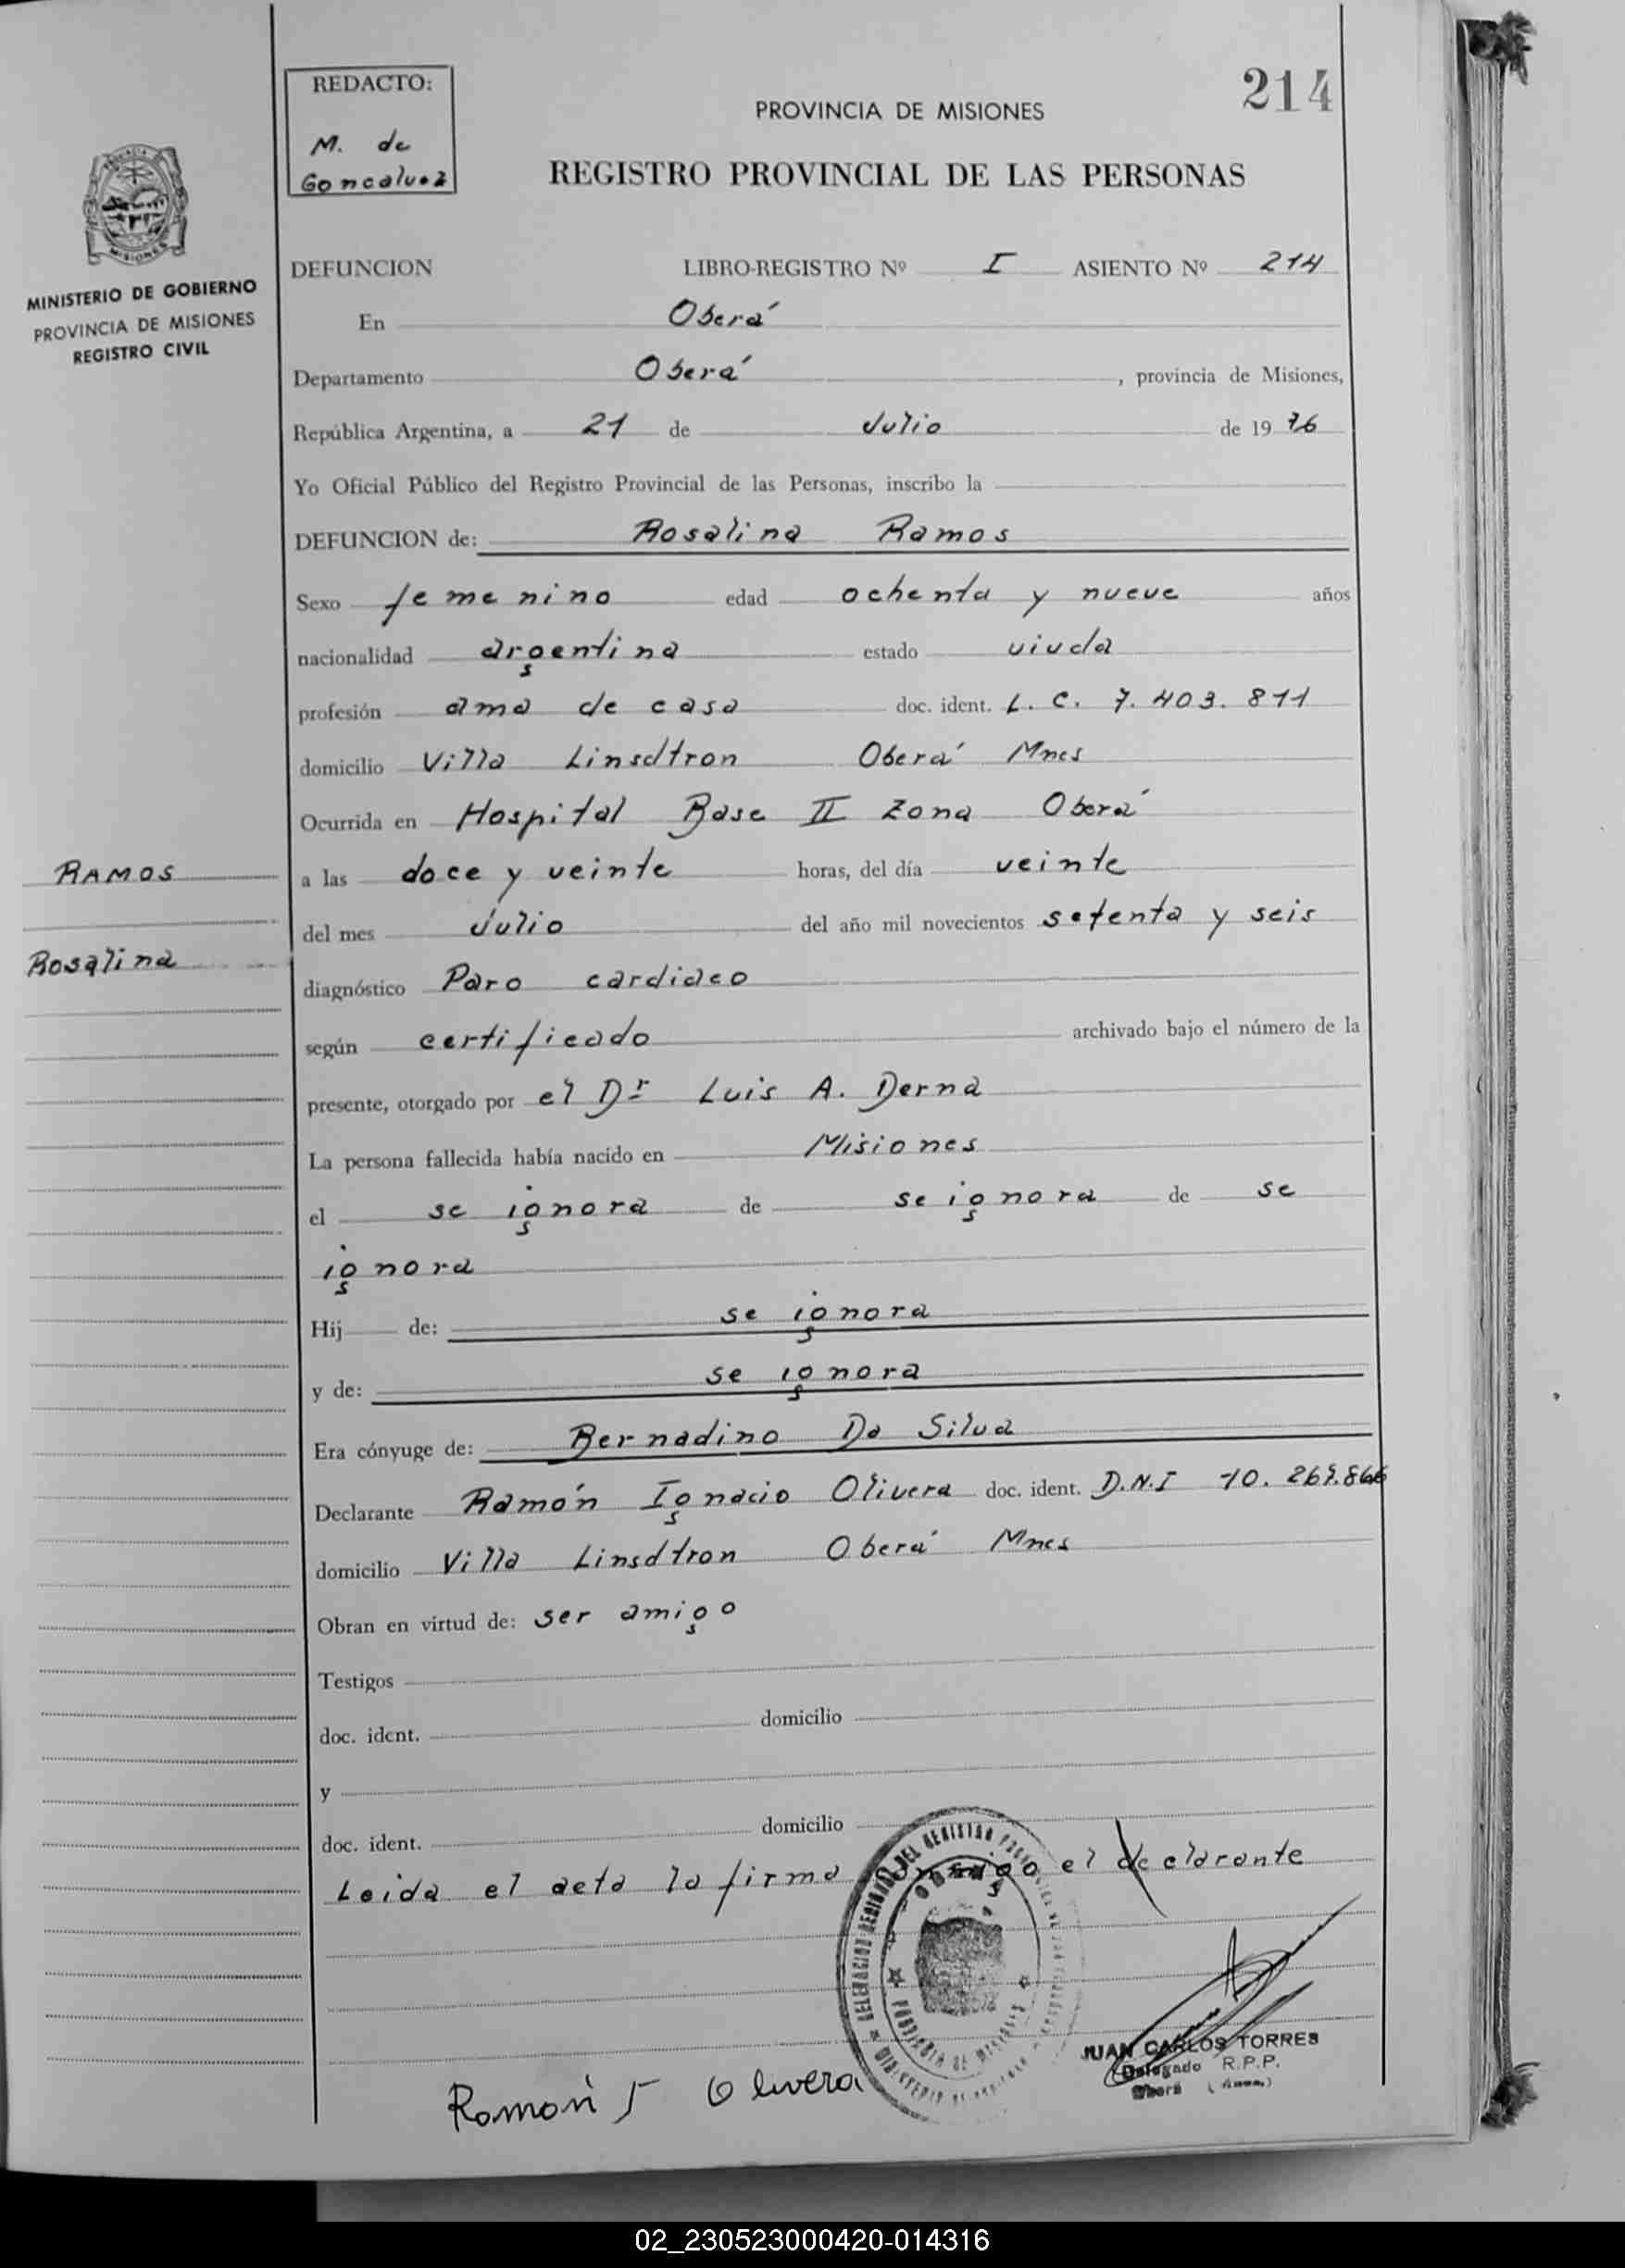 214
REDACTO:
M. de
Goncalvez
PROVINCIA DE MISIONES
REGISTRO PROVINCIAL DE LAS PERSONAS
MISIONES
MINISTERIO DE GOBIERNO
PROVINCIA DE MISIONES
REGISTRO CIVIL
DEFUNCION LIBRO-REGISTRO Nº I ASIENTO Nº 214
En Oberá
Departamento Oberá, provincia de Misiones,
República Argentina, a 21 de Julio de 19 76
Yo Oficial Público del Registro Provincial de las Personas, inscribo la
DEFUNCION de: Rosalina Ramos
Sexo femenino edad ochenta y nueve años
nacionalidad argentina estado viuda
profesión ama de casa doc. ident. L. C. 7.403.811
domicilio Villa Linsdtron Oberá Mnes
Ocurrida en Hospital Base II Zona Oberá
RAMOS
a las doce y veinte horas, del día veinte
del mes Julio del año mil novecientos setenta y seis
Rosalina
diagnóstico Paro cardiaco
según certificado archivado bajo el número de la
presente, otorgado por el Dr Luis A. Derna
La persona fallecida había nacido en Misiones
el se ignora de se ignora de se
ignora
Hij de: se ignora
y de: se ignora
Era cónyuge de: Bernadino Da Silva
Declarante Ramón Ignacio Olivera doc. ident. D.N.I 10.269.866
domicilio Villa Linsdtron Oberá Mnes
Obran en virtud de: ser amigo
Testigos
doc. ident. domicilio
y
doc. ident. domicilio
Leida el acta la firma conmigo el declarante
JUAN CARLOS TORRES
Delegado R.P.P.
Oberá
Ramón I Olivera
02_230523000420-014316